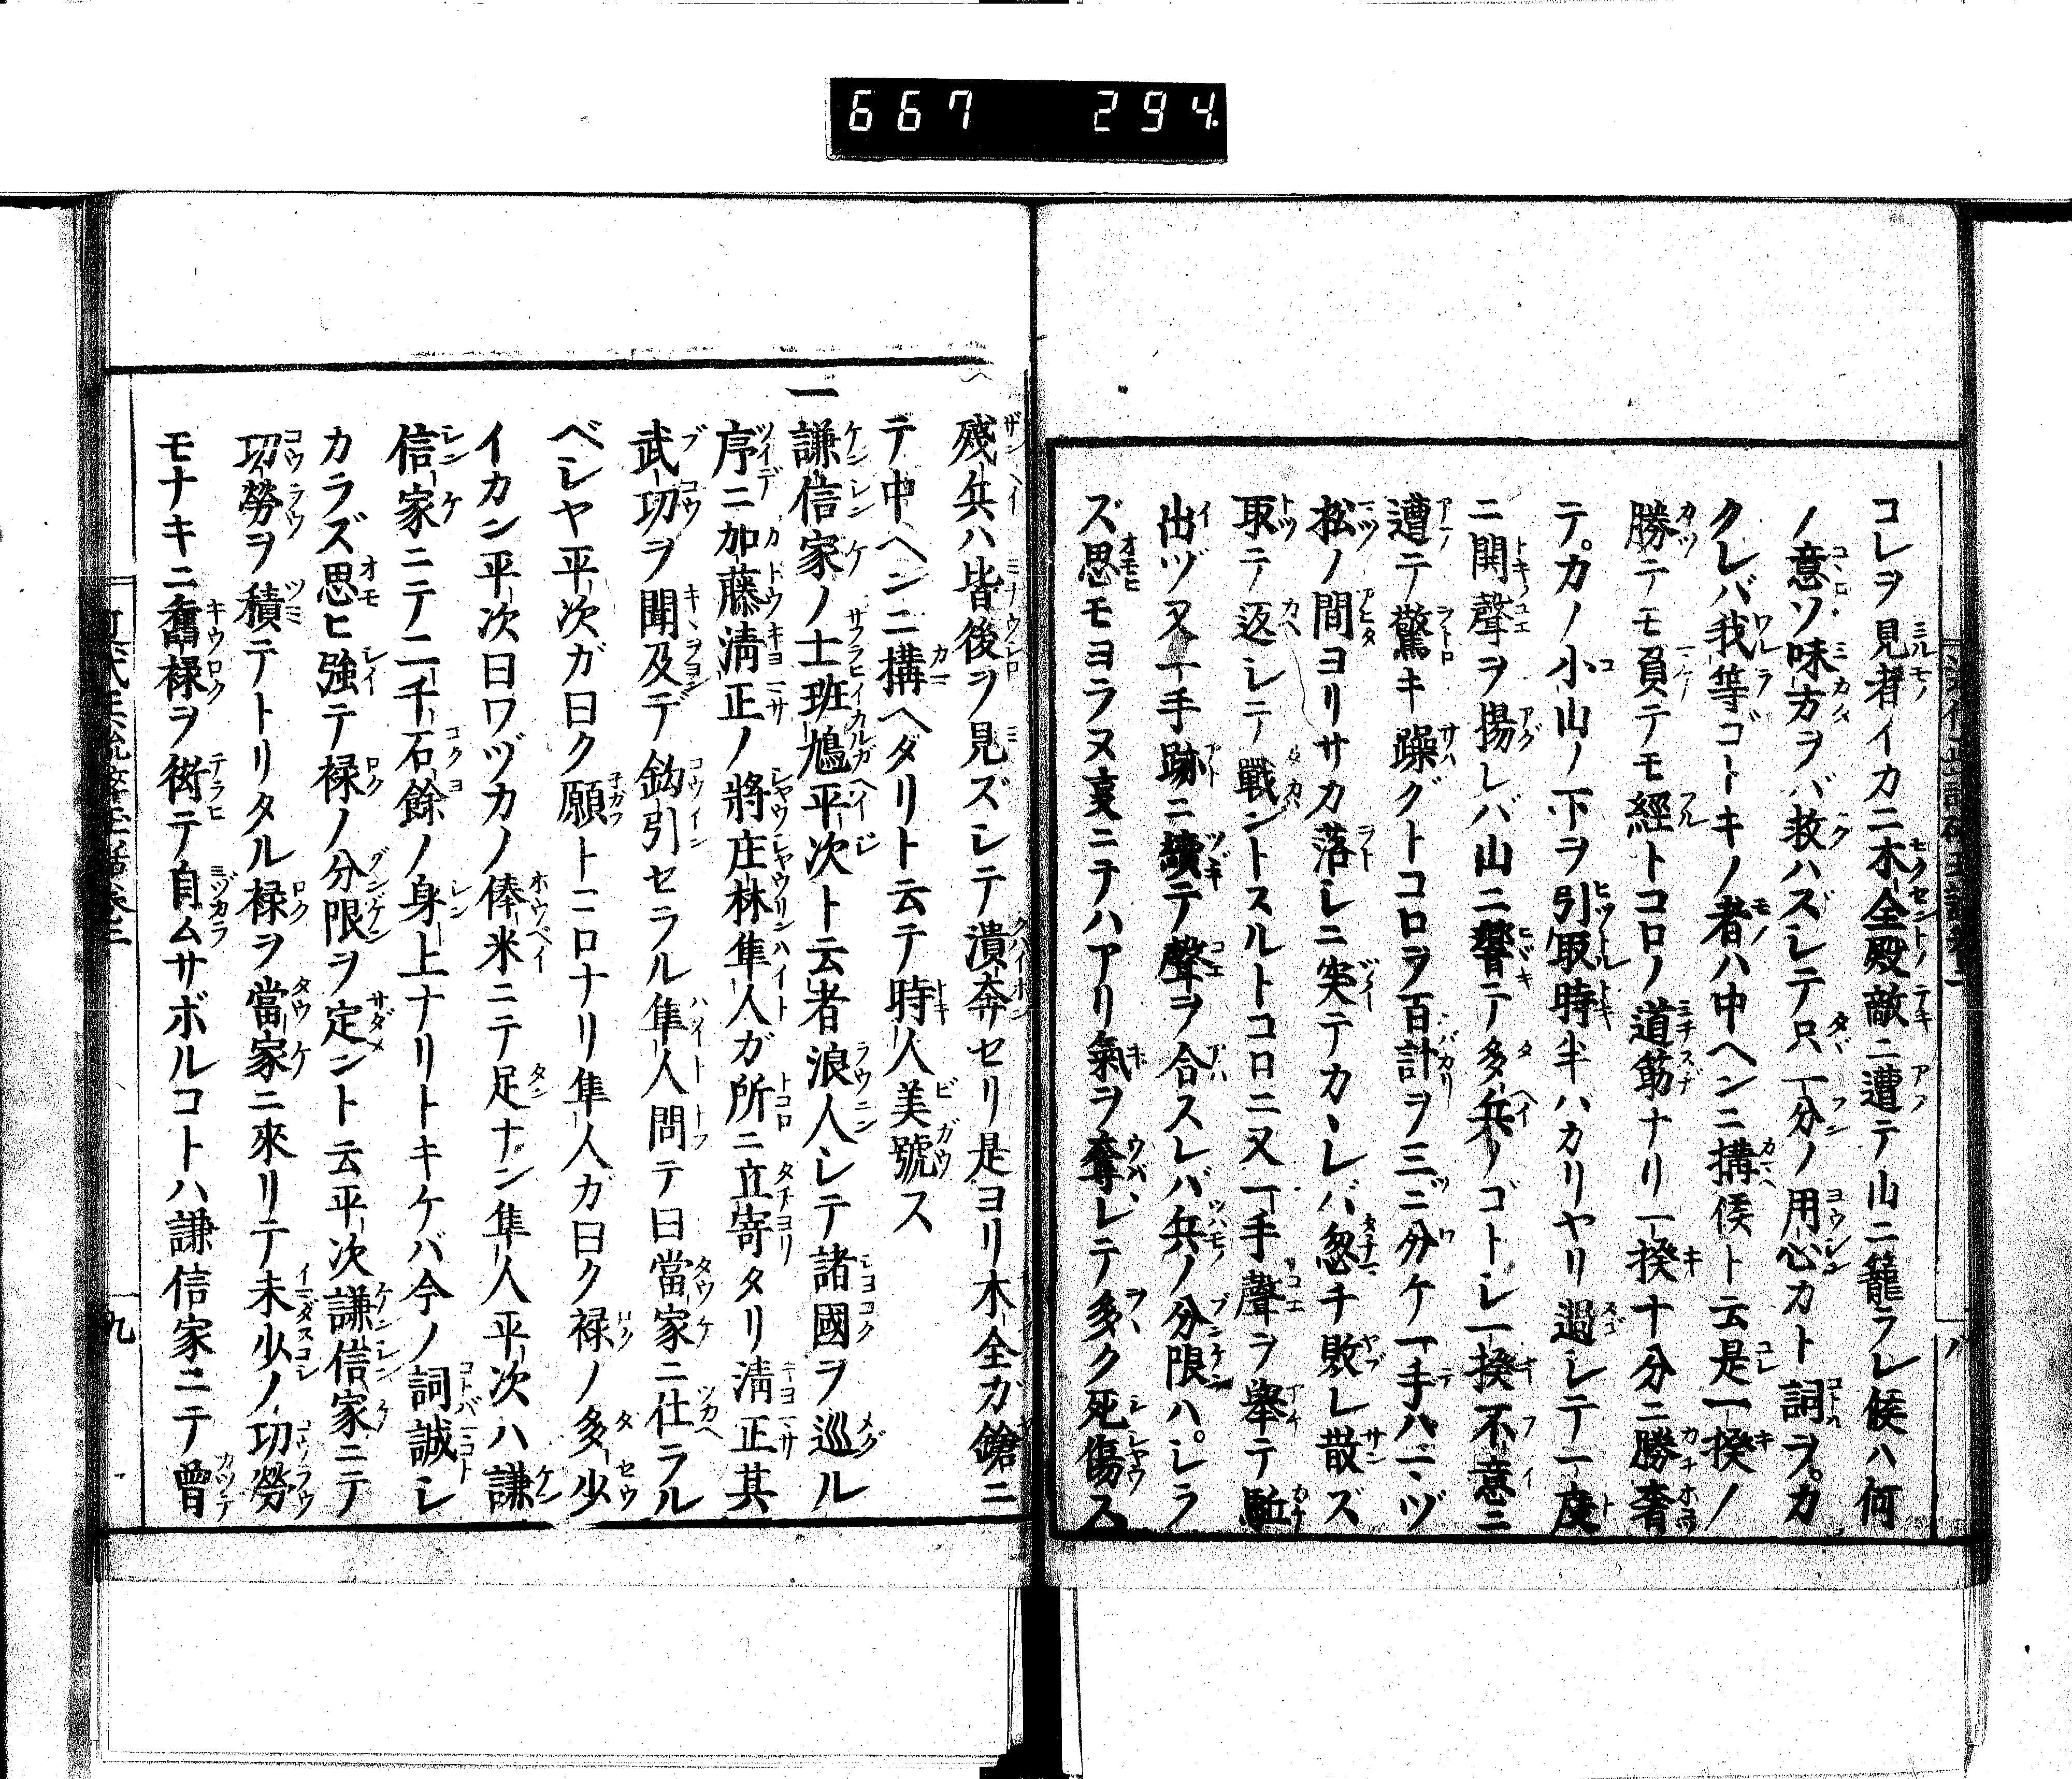 667 294
コレヲ見者イカニ木全殿敵ニ遭テ山ニ籠ラレ候ハ何
ノ意ソ味方ヲバ救ハズレテ只一分ノ用心カト詞ヲカ
クレバ我等ゴトキノ者ハ中ヘンニ搆候ト云是一揆ノ
勝テモ負テモ經トコロノ道筋ナリ一揆十分ニ勝奢
テカノ小山ノ下ヲ引取時半ハカリヤリ過レテ一度
ニ開聲ヲ揚レバ山ニ響テ多兵ノゴトレ一揆不意ニ
遭テ驚キ躁グトコロヲ百計ヲ三ニ分ケ一手ハニヽヅ
松ノ間ヨリサカ落レニ突テカヽレバ忽チ敗レ散ズ
取テ返レテ戰ントスルトコロニ又一手聲ヲ舉テ駈
出ヅ又一手跡ニ續テ聲ヲ合スレバ兵ノ分限ハレラ
ズ思モヨラヌ叓ニテハアリ氣ヲ奪レテ多ク死傷ス
八
殘兵ハ皆後ヲ見ズレテ潰奔セリ是ヨリ木全ガ鎗ニ
テ中ヘンニ搆ヘダリト云テ時人美號ス
一謙信家ノ士班鳩平次ト云者浪人レテ諸國ヲ巡ル
序ニ加藤淸正ノ將庄林隼人ガ所ニ立寄タリ淸正其
武功ヲ聞及デ鈎引セラル隼人問テ曰當家ニ仕ラル
ベレヤ平次ガ曰ク願トコロナリ隼人ガ曰ク禄ノ多少
イカン平次曰ワヅカノ俸米ニテ足ナン隼人平次ハ謙
信家ニテ二千石餘ノ身上ナリトキケバ今ノ詞誠レ
カラズ思ヒ強テ禄ノ分限ヲ定ント云平次謙信家ニテ
功勞ヲ積テトリタル禄ヲ當家ニ來リテ未少ノ功勞
モナキニ舊禄ヲ衒テ自ムサボルコトハ謙信家ニテ曾
九